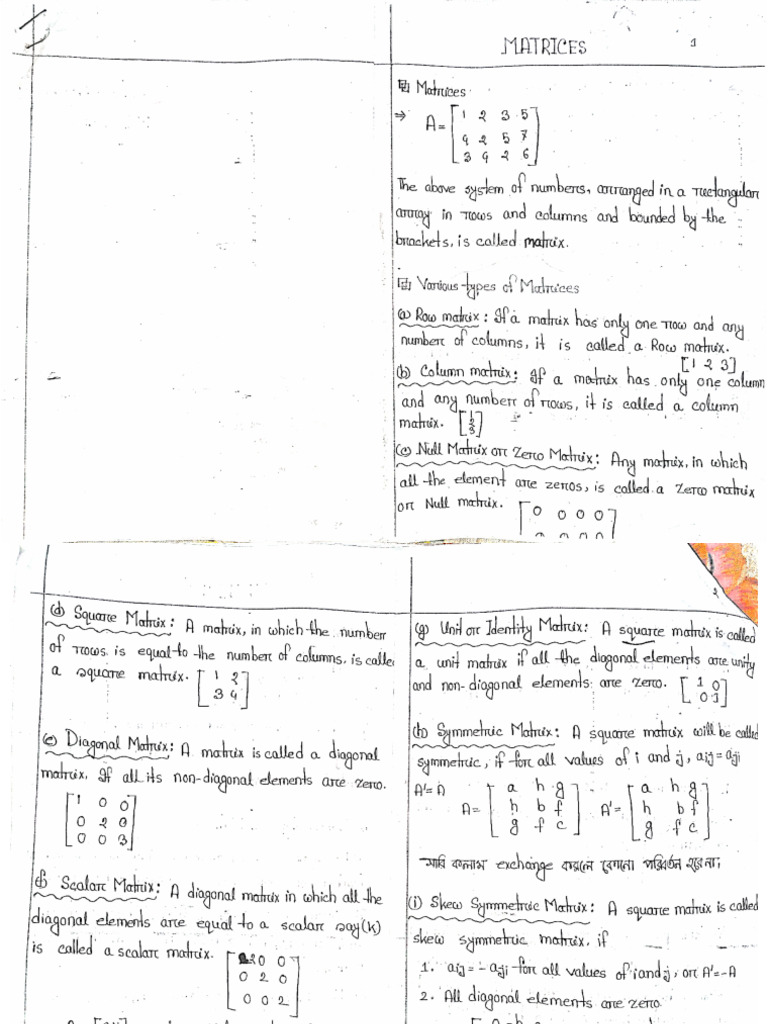 MATRICES 1
Matrices
⇒ A = [1 2 3 5
4 2 5 7
3 4 2 6]
The above system of numbers, arranged in a rectangular
array in rows and columns and bounded by the
brackets, is called matrix.
Various types of Matrices
(a) Row matrix: If a matrix has only one row and any
number of columns, it is called a Row matrix.
[1 2 3]
(b) Column matrix: If a matrix has only one column
and any number of rows, it is called a column
matrix. [1 2 3]
(c) Null Matrix or Zero Matrix: Any matrix, in which
all the element are zeros, is called a Zero matrix
or Null matrix. [0 0 0 0
2
(d) Square Matrix: A matrix, in which the number
of rows is equal to the number of columns, is called
a square matrix. [1 2
3 4]
(e) Diagonal Matrix: A matrix is called a diagonal
matrix. If all its non-diagonal elements are zero.
[1 0 0
0 2 0
0 0 3]
(f) Scalar Matrix: A diagonal matrix in which all the
diagonal elements are equal to a scalar say (k)
is called a scalar matrix. [2 0 0
0 2 0
0 0 2]
(g) Unit or Identity Matrix: A square matrix is called
a unit matrix if all the diagonal elements are unity
and non-diagonal elements are zero. [1 0
0 1]
(h) Symmetric Matrix: A square matrix will be called
symmetric, if for all values of i and j, aij = aji
A' = A
A = [a h g
h b f
g f c] A' = [a h g
h b f
g f c]
সারি কলাম exchange করলে কোনো পরিবর্তন হবে না।
(i) Skew Symmetric Matrix: A square matrix is called
skew symmetric matrix, if
1. aij = -aji for all values of i and j, or A' = -A
2. All diagonal elements are zero.